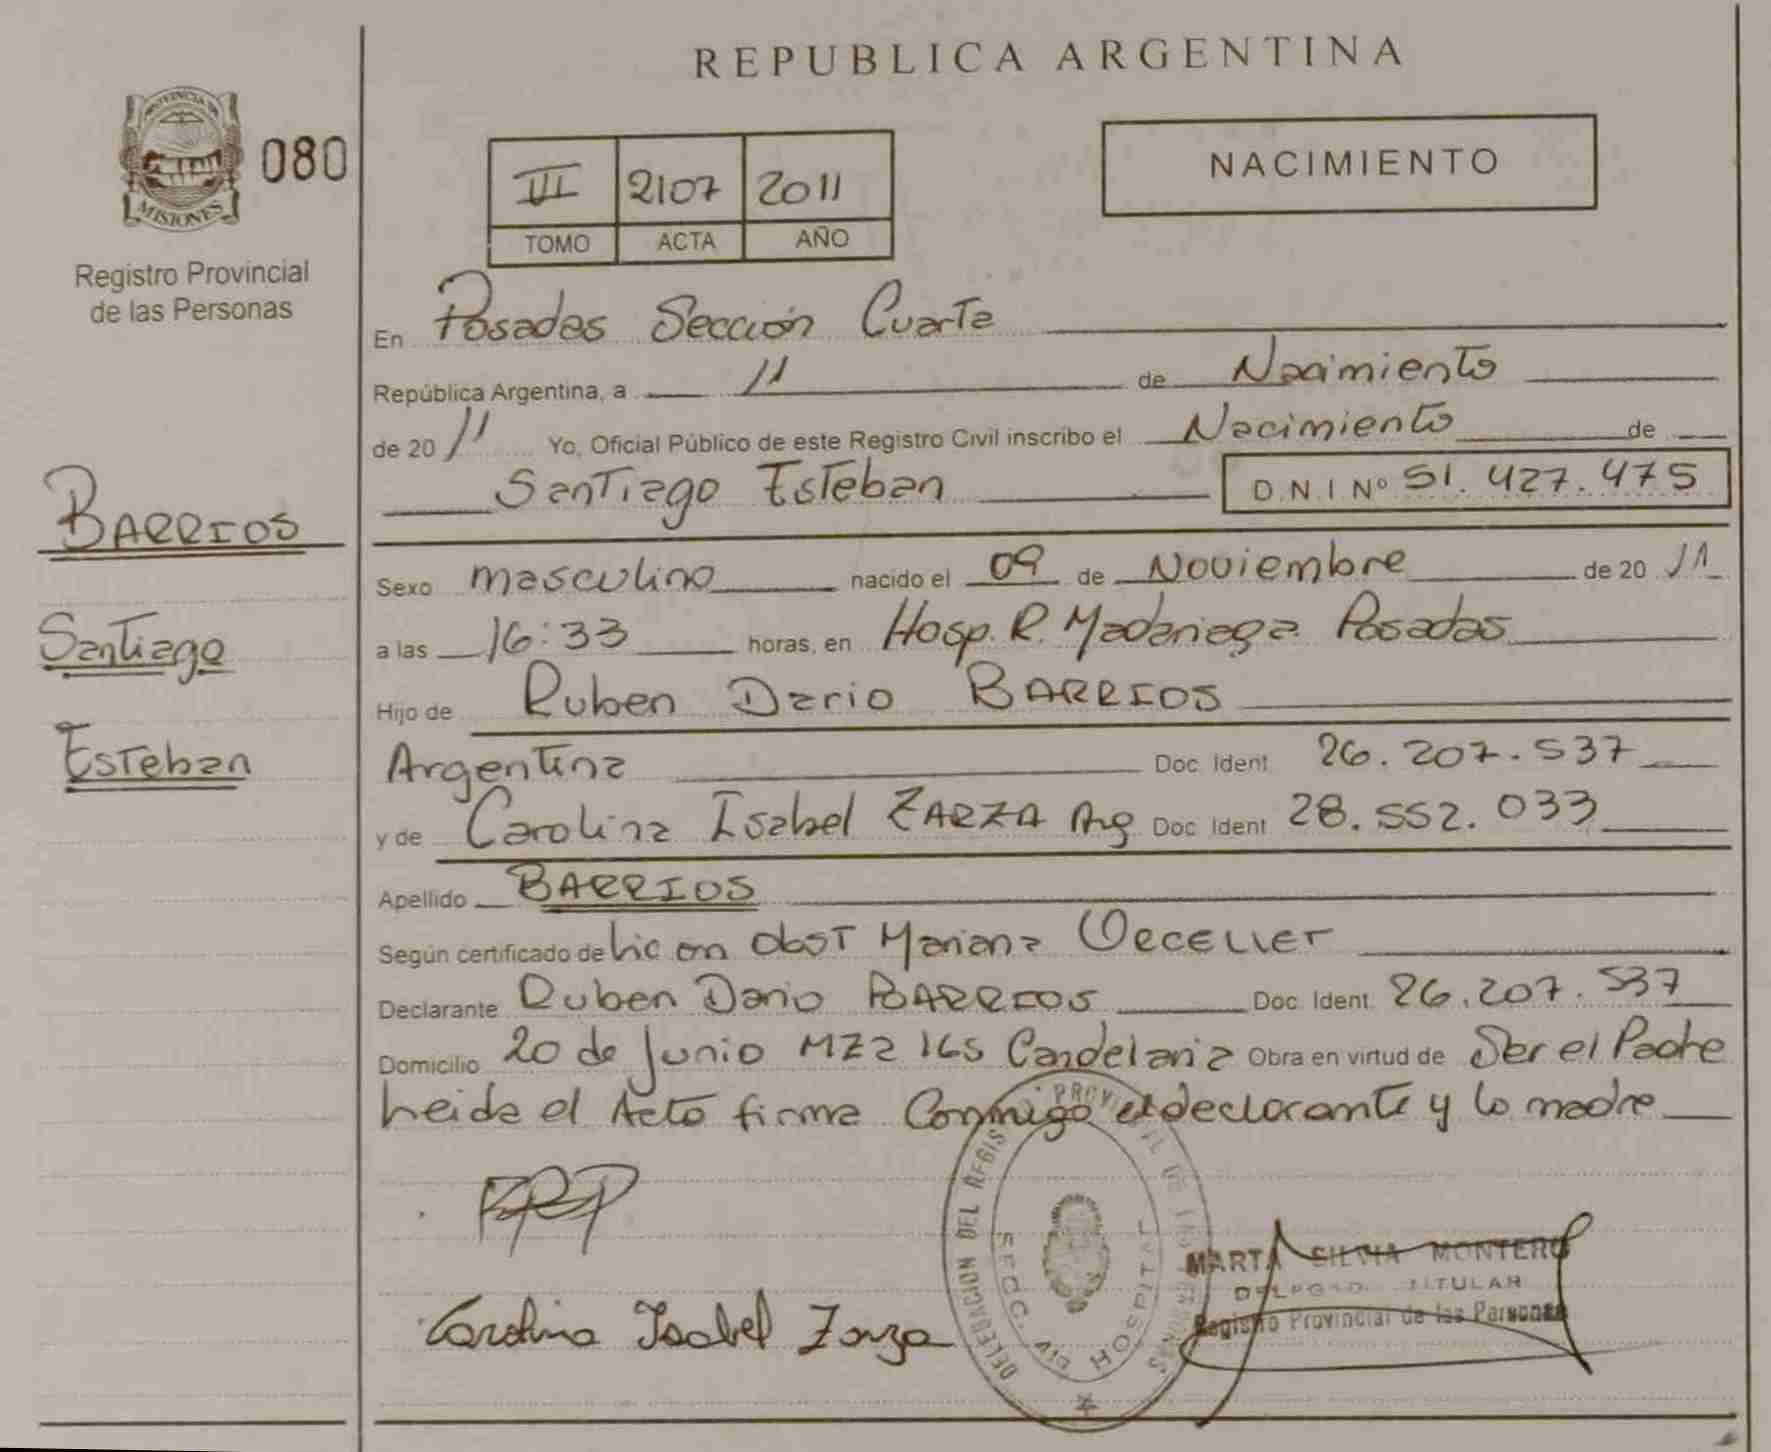 REPUBLICA ARGENTINA
PROVINCIA DE
MISIONES
080
Registro Provincial
de las Personas
III 2107 2011
TOMO ACTA AÑO
NACIMIENTO
En Posadas Sección Cuarta
República Argentina, a 11 de Nacimiento
de 20 11 Yo, Oficial Público de este Registro Civil inscribo el Nacimiento de
Santiago Esteban D.N.I Nº 51.427.475
BARRIOS
Santiago
Esteban
Sexo masculino nacido el 09 de Noviembre de 20 11
a las 16:33 horas, en Hosp. R. Madariaga Posadas
Hijo de Ruben Dario BARRIOS
Argentina Doc. Ident. 26.207.537
y de Carolina Isabel ZARZA Arg Doc. Ident. 28.552.033
Apellido BARRIOS
Según certificado de Lic en Obst Mariana
Declarante Ruben Dario BARRIOS Doc. Ident. 26.207.537
Domicilio 20 de Junio MZa 165 Candelaria Obra en virtud de Ser el Padre
Leida el Acta firma Conmigo el declarante y la madre
Carolina Isabel Zarza
DELEGACION DEL REGISTRO PROVINCIAL DE LAS PERSONAS
SECC. 4ta HOSPITAL
MARTA SILVIA MONTERO
DELEGADA TITULAR
Registro Provincial de las Personas